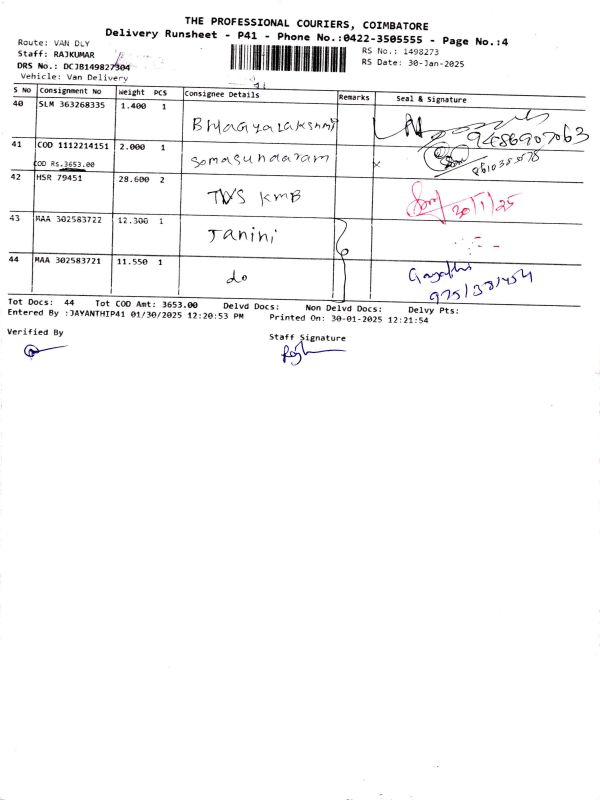 THE PROFESSIONAL COURIERS, COIMBATORE
Delivery Runsheet - P41 - Phone No.:0422-3505555 - Page No.:4
Route: VAN DLY
Staff: RAJKUMAR
DRS No.: DCJB149827304
Vehicle: Van Delivery
RS No.: 1498273
RS Date: 30-Jan-2025
S No Consignment No Weight PCS Consignee Details Remarks Seal & Signature
40 SLM 363268335 1.400 1 Bhagyalakshmi 9486907063
41 COD 1112214151 2.000 1 somasundaram x
COD Rs.3653.00
42 HSR 79451 28.600 2 TVS KMB 30/1/25
43 MAA 302583722 12.300 1 Janini
44 MAA 302583721 11.550 1 do Gayathri
Tot Docs: 44 Tot COD Amt: 3653.00 Delvd Docs: Non Delvd Docs: Delvy Pts:
Entered By :JAYANTHIP41 01/30/2025 12:20:53 PM Printed On: 30-01-2025 12:21:54
Verified By
Staff Signature